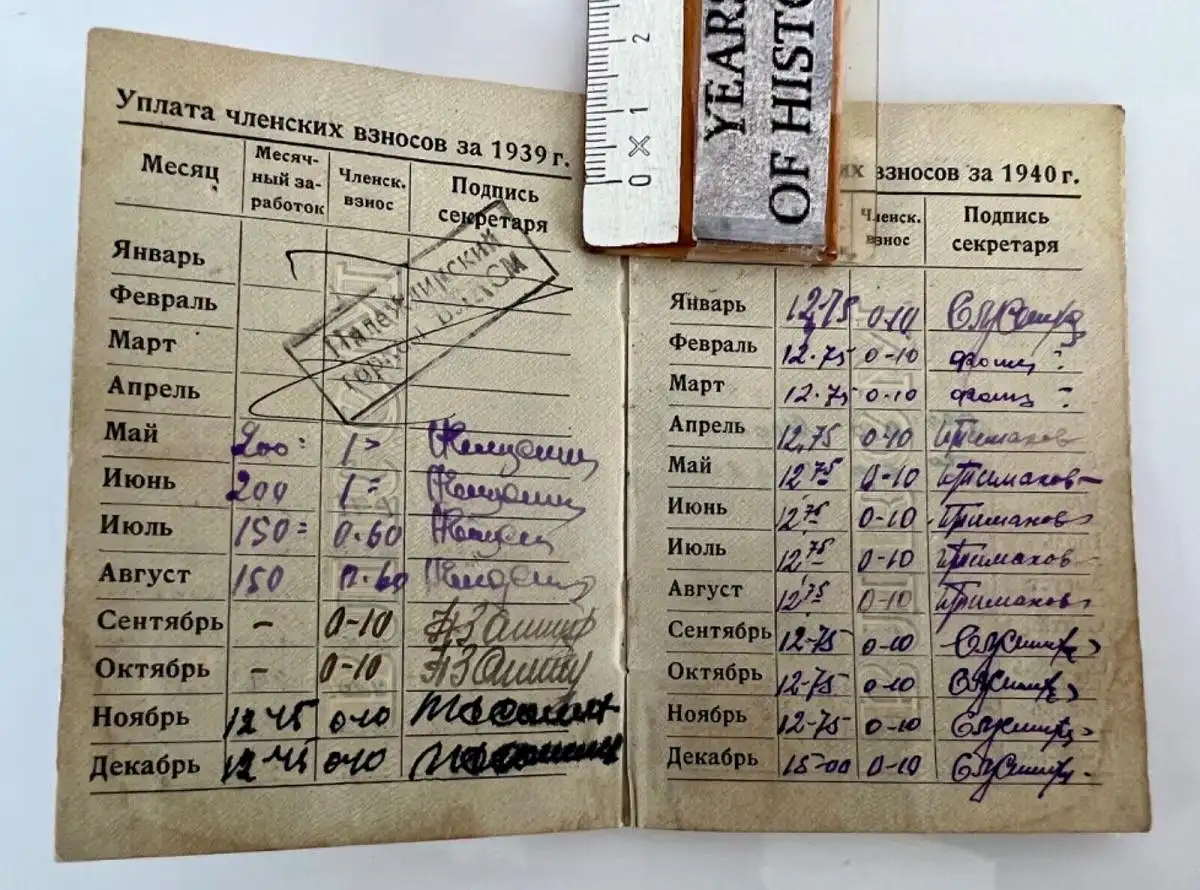 YEARS
OF HISTO
0 X 1 2
Уплата членских взносов за 1939 г.
Месяц Месяч- ный за- работок Членск. взнос Подпись секретаря
Январь
Февраль
Март
Апрель
Май 200= 1=
Июнь 200 1=
Июль 150= 0.60
Август 150 0.60
Сентябрь – 0-10
Октябрь – 0-10
Ноябрь 0-10
Декабрь 0-10
горком ВЛКСМ
их взносов за 1940 г.
Членск. взнос Подпись секретаря
Январь 12-75 0-10
Февраль 12.75 0-10
Март 12.75 0-10
Апрель 12,75 0-10 Примаков
Май 12 75 0-10 Примаков
Июнь 12 75 0-10 Примаков
Июль 12 75 0-10 Примаков
Август 12 75 0-10 Примаков
Сентябрь 12-75 0-10
Октябрь 12-75 0-10
Ноябрь 12-75 0-10
Декабрь 15-00 0-10